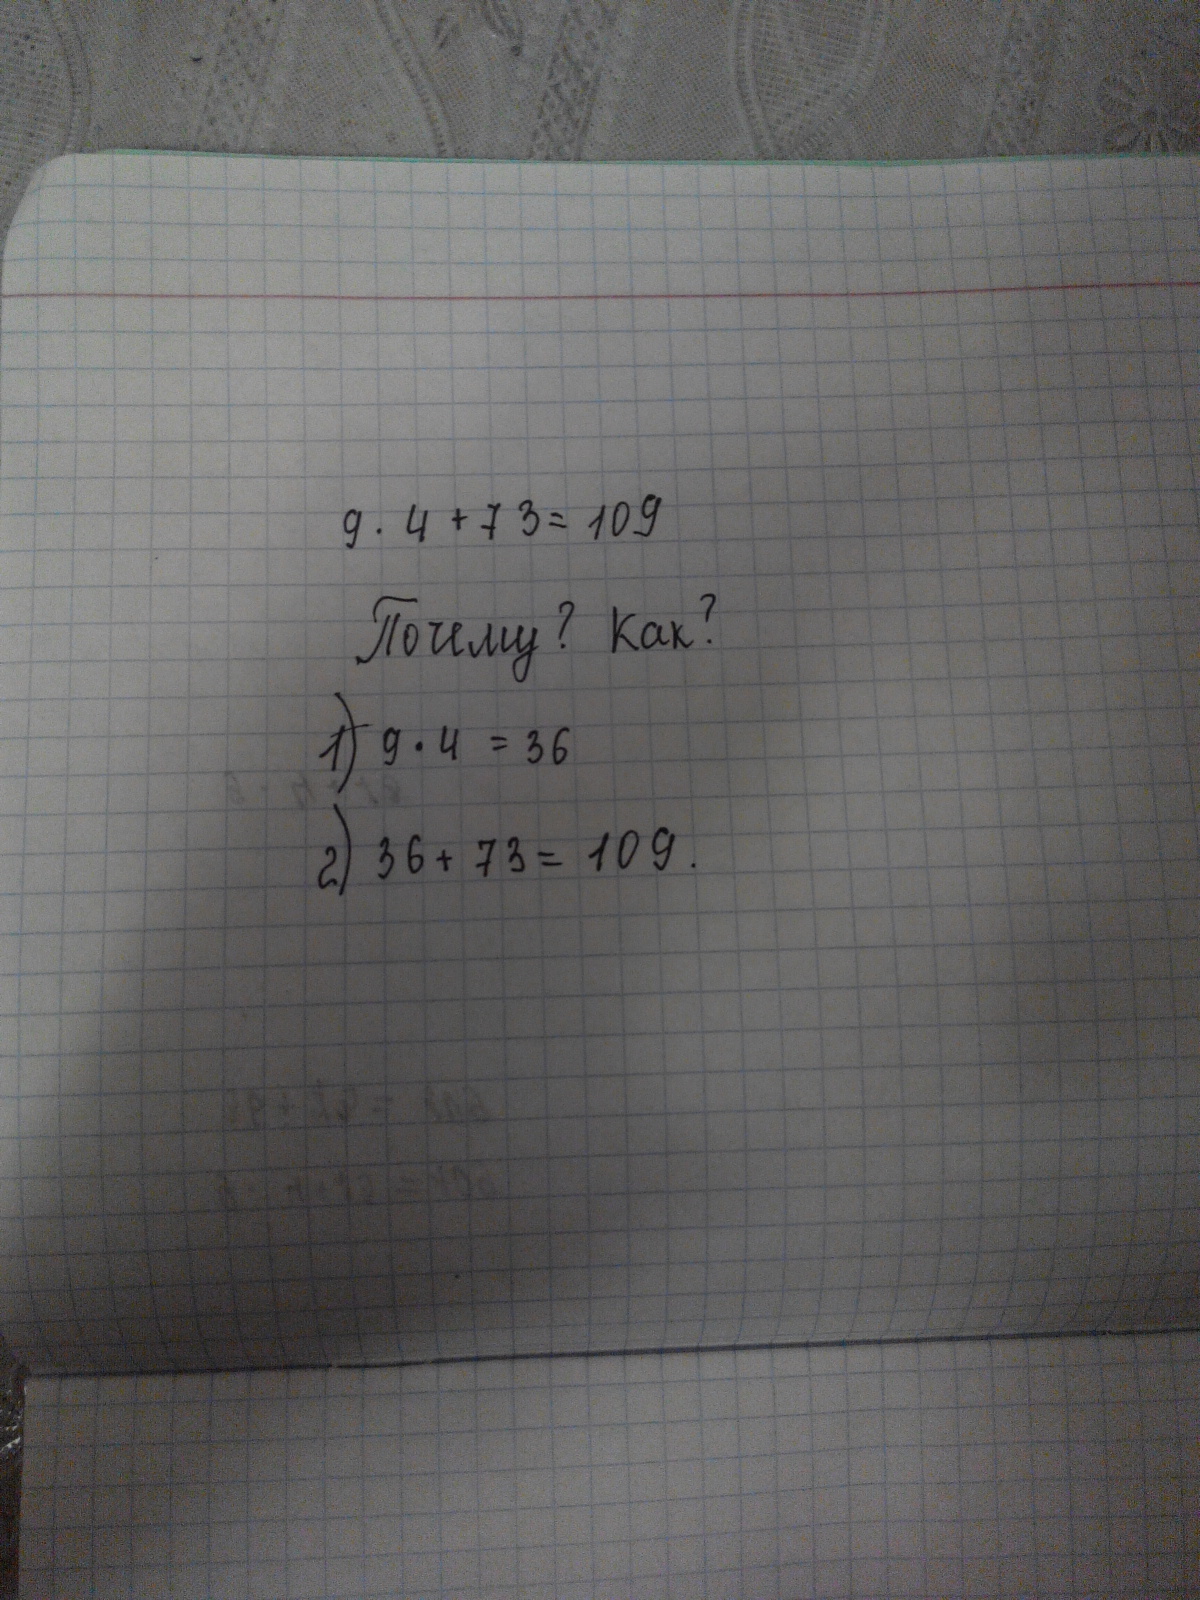 9 · 4 + 73 = 109
Почему? Как?
1) 9 · 4 = 36
2) 36 + 73 = 109.